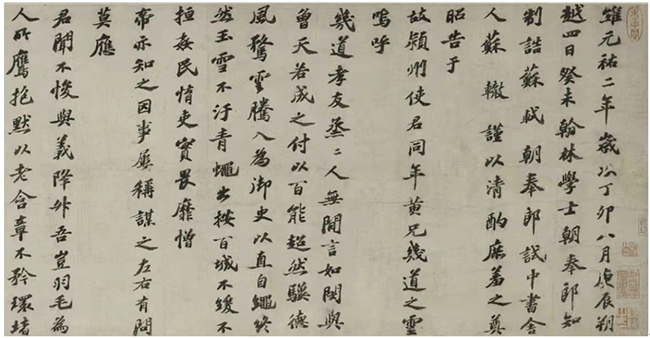 維元祐二年歲次丁卯八月庚辰朔
越四日癸未翰林學士朝奉郎知
制誥蘇軾朝奉郎試中書舍
人蘇轍謹以清酌庶羞之奠
昭告于
故潁州使君同年黃兄幾道之靈
嗚呼
幾道孝友烝々人無間言如閔與
曾天若成之付以百能超然驥德
風鶩雲騰入為御史以直自繩終
然玉雪不汙青蠅出按百城不緩不
搄姦民惰吏實畏靡憎
帝亦知之因事屢稱謀之左右有問
莫應
君聞不悛與義降升吾豈羽毛為
人所鷹抱默以老含章不矜環堵